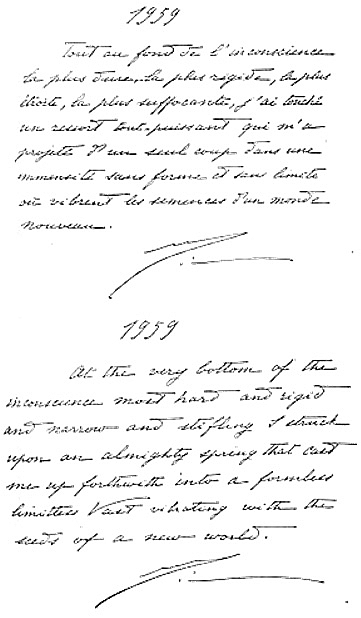 1959
Tout au fond de l'inconscience
la plus dure, la plus rigide, la plus
étroite, la plus suffocante, j'ai touché
un ressort tout-puissant qui m'a
projetée d'un seul coup dans une
immensité sans forme et sans limite
où vibrent les semences d'un monde
nouveau.
1959
At the very bottom of the
inconscience most hard and rigid
and narrow and stifling I struck
upon an almighty spring that cast
me up forthwith into a formless
limitless Vast vibrating with the
seeds of a new world.